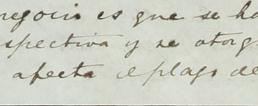 negocio es que se ha
spectiva y se otorg
afecta el plazo de